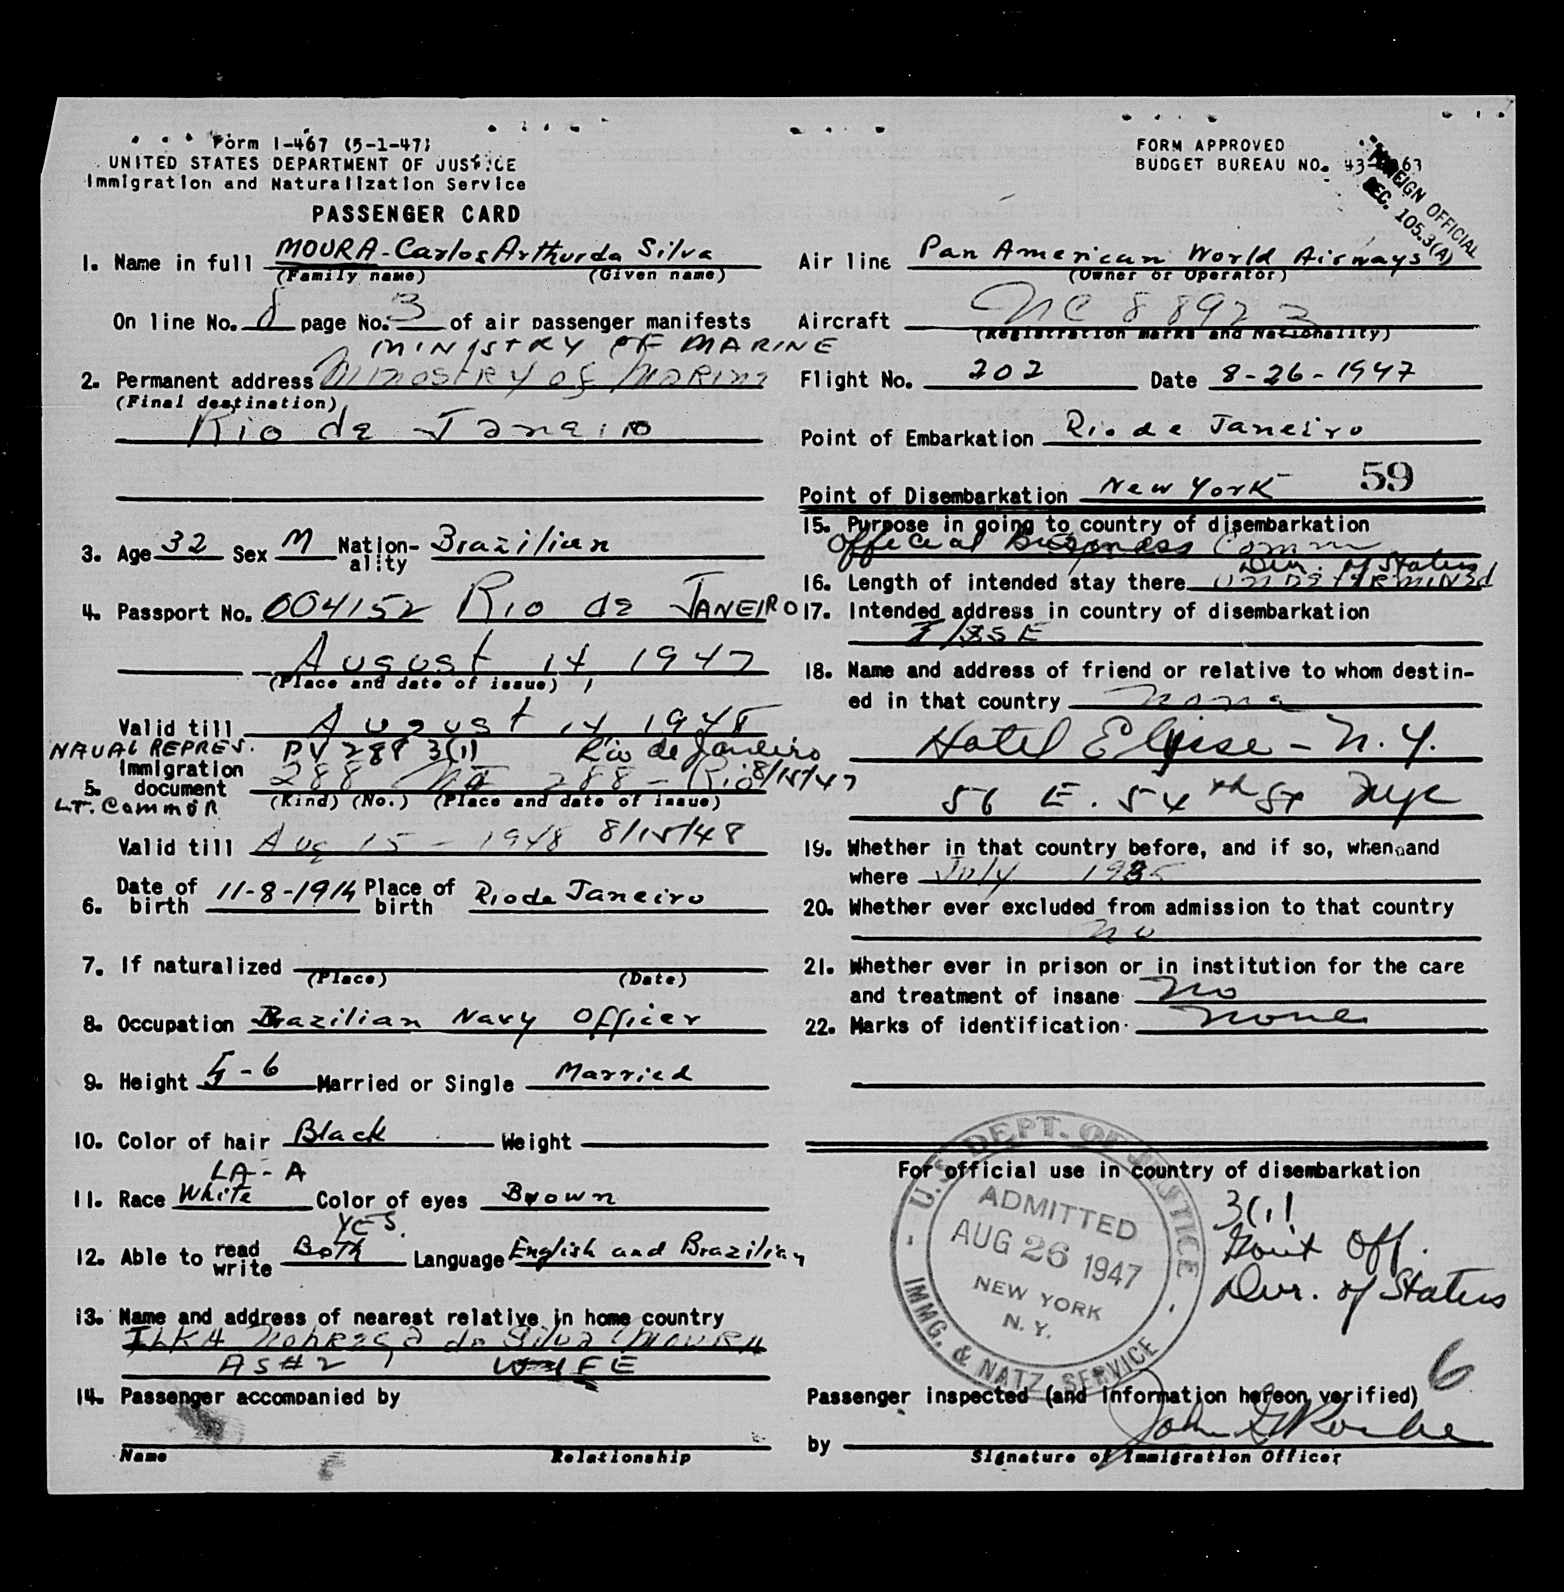 Form I-467 (5-1-47)
UNITED STATES DEPARTMENT OF JUSTICE
Immigration and Naturalization Service
PASSENGER CARD
FORM APPROVED
BUDGET BUREAU NO. 43
FOREIGN OFFICIAL
SEC. 105.3(A)
1. Name in full MOURA-Carlos Arthur da Silva
(Family name) (Given name)
On line No. 8 page No. 3 of air passenger manifests
MINISTRY OF MARINE
2. Permanent address Ministry of Marine
(Final destination)
Rio de Janeiro
3. Age 32 Sex M Nationality Brazilian
4. Passport No. 004152 Rio de JANEIRO
August 14 1947
(Place and date of issue)
Valid till August 14, 1948
NAVAL REPRES. PV 288 3(1) Rio de Janeiro
Immigration
5. document 288 288 - Rio 8/15/47
LT. Commdr (Kind) (No.) (Place and date of issue)
Valid till Aug 15 - 1948 8/15/48
6. Date of birth 11-8-1914 Place of birth Rio de Janeiro
7. If naturalized
(Place) (Date)
8. Occupation Brazilian Navy Officer
9. Height 5-6 Married or Single Married
10. Color of hair Black Weight
LA-A
11. Race White Color of eyes Brown
YES.
12. Able to read write Both Language English and Brazilian
13. Name and address of nearest relative in home country
ILKA da Silva Moura
AS # 2 WIFE
14. Passenger accompanied by
Name Relationship
Air line Pan American World Airways
(Owner or Operator)
Aircraft NC 88923
(Registration marks and Nationality)
Flight No. 202 Date 8-26-1947
Point of Embarkation Rio de Janeiro
Point of Disembarkation New York 59
15. Purpose in going to country of disembarkation
Official Business
Div. of Status
16. Length of intended stay there undetermined
17. Intended address in country of disembarkation
18. Name and address of friend or relative to whom destined in that country none
Hotel Elysee - N.Y.
56 E. 54th St NYC
19. Whether in that country before, and if so, when and
where July 1935
20. Whether ever excluded from admission to that country
no
21. Whether ever in prison or in institution for the care
and treatment of insane no
22. Marks of identification none
For official use in country of disembarkation
U.S. DEPT. OF JUSTICE
ADMITTED
AUG 26 1947
NEW YORK
N.Y.
IMMG. & NATZ. SERVICE
3(1)
Gov't Off.
Div. of Status
6
Passenger inspected (and information hereon verified)
by John
Signature of Immigration Officer